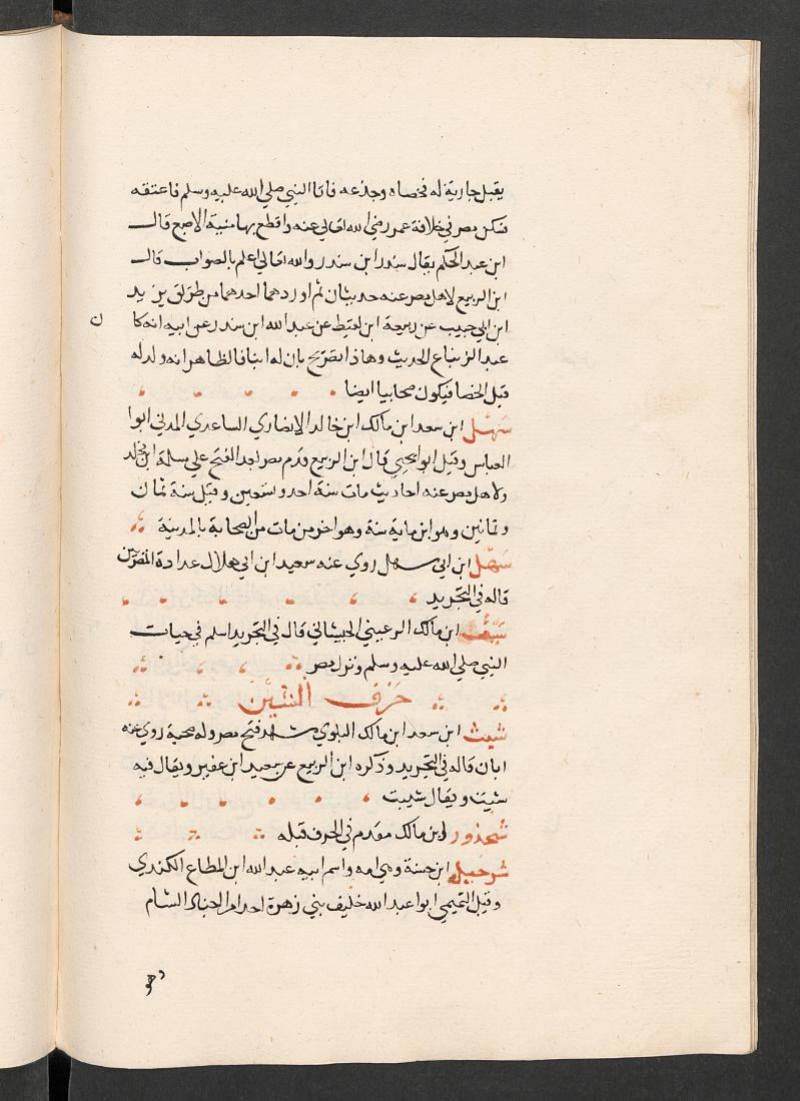 يقبل جارية له فخصاه وجذعه فاتا النبي صلي الله عليه وسلم فاعتقه
فسكن مصر في خلافة عمر رضي الله تعالي عنه واقطع بها منية الاصبع قال
ابن عبد الحكم يقال سندر ابن سندر والله تعالي اعلم بالصواب قال
ابن الربيع لاهل مصر عنه حديثان ثم اوردهما احدهما من طريق يزيد
ابن ابي حبيب عن ربيعة ابن لقيط عن عبد الله ابن سندر عن ابيه انه كان
عبد الزنباع الحديث وهاذا تصريح بان له ابنا فالظاهر انه ولد له
قبل الخصا فيكون صحابيا ايضا
سهل ابن سعد ابن مالك ابن خالد الانصاري الساعدي المدني ابوا
العباس وقيل ابوا يحيي قال ابن الربيع قدم مصر بعد الفتح علي مسلمة ابن مخلد
ولاهل مصر عنه احاديث مات سنة احد وتسعين وقيل سنة ثمان
وثمانين وهو ابن ماية سنة وهو اخر من مات من الصحابة بالمدينة
سهل ابن ابي سهل روي عنه سعيد ابن ابي هلال عداده المصريين
قاله في التجريد
سيف ابن مالك الرعيني الجيشاني قال في التجريد اسلم في حيات
النبي صلي الله عليه وسلم ونزل مصر
حرف الشين
شيث ابن سعد ابن مالك البلوي شهد فتح مصر وله صحبة روي عنه
ابان قاله في التجريد وذكره ابن الربيع عن سعيد ابن عفير ويقال فيه
شيت ويقال شبيت
شجذور ابن مالك مقدم في الحرف قبله
شرحبيل ابن حسنة وهي امه واسم ابيه عبد الله ابن المطاع الكندي
وقيل التميمي ابوا عبد الله حليف بني زهرة احد امرا اجناد الشام
وهو